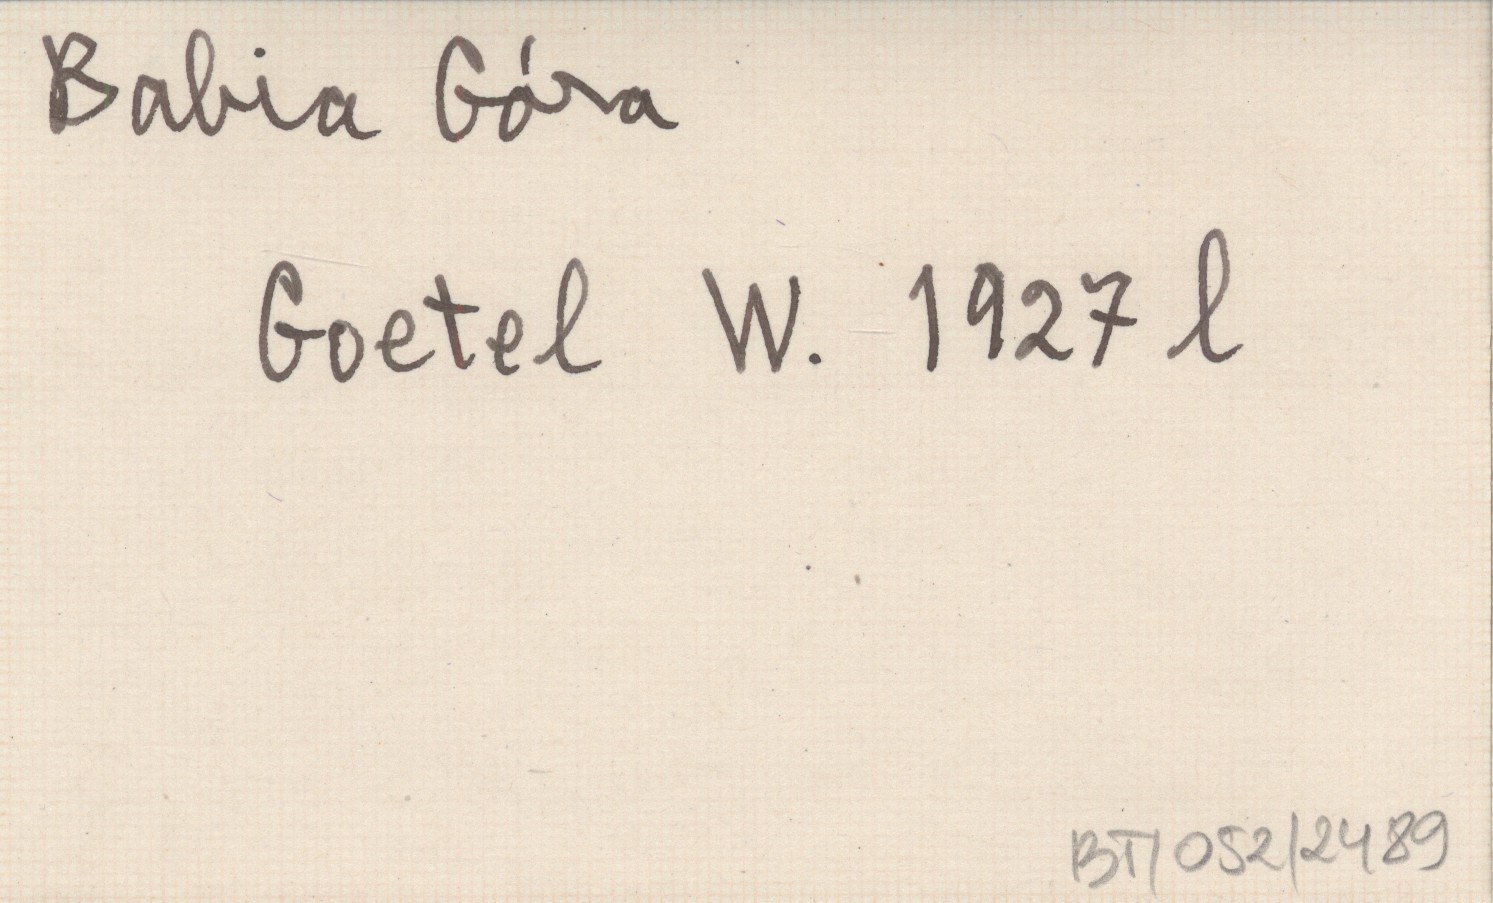 Babia Góra
Goetel W. 1927 l
BT/052/2489